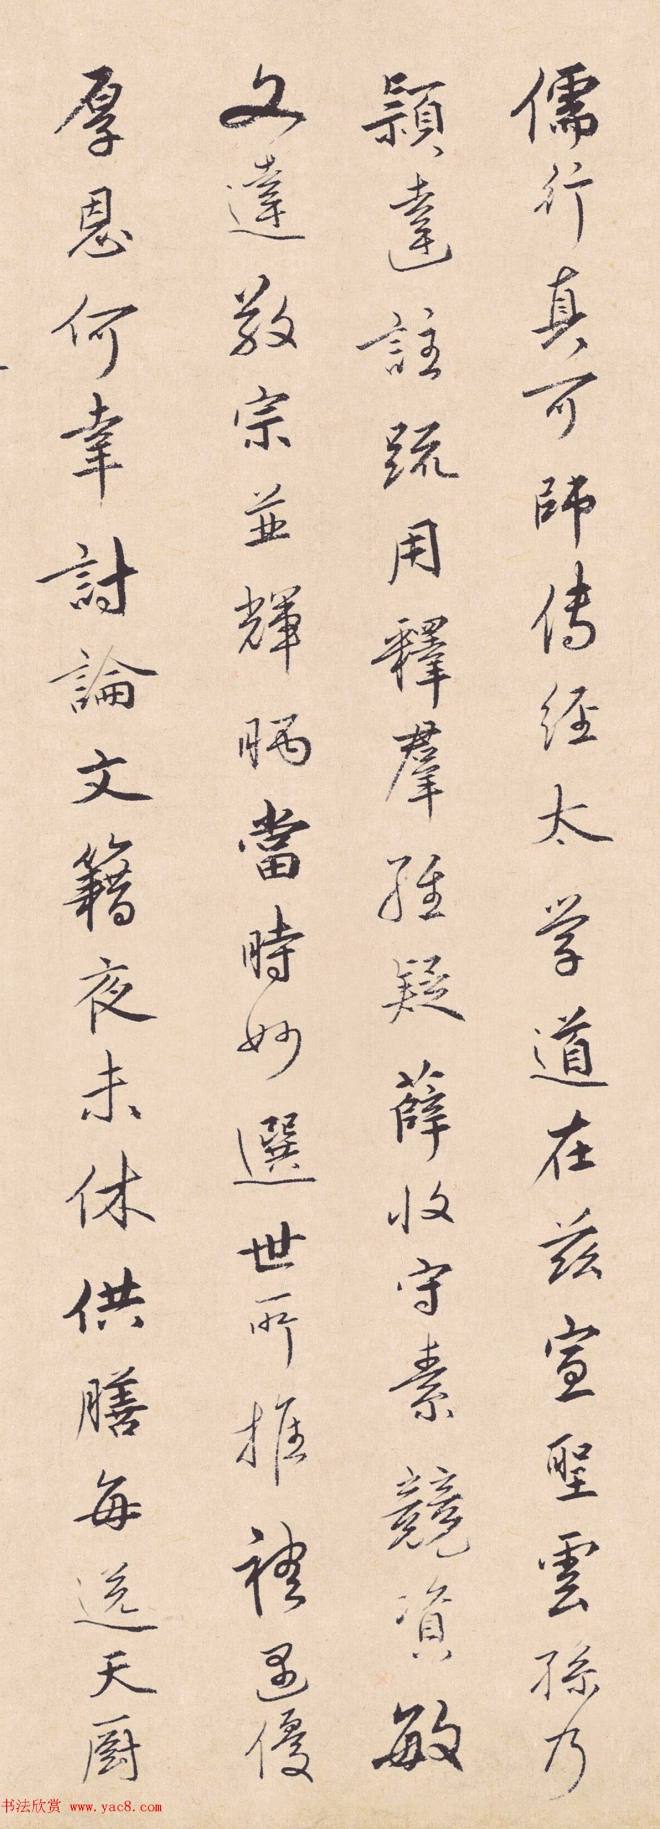 儒行真可師傳經太學道在茲宣聖雲孫乃
穎達註疏用釋群経疑薛收守素競資敏
文達敬宗並輝暎當時妙選世所推禮遇優
厚恩何幸討論文籍夜未休供膳每送天厨
书法欣赏 www.yac8.com